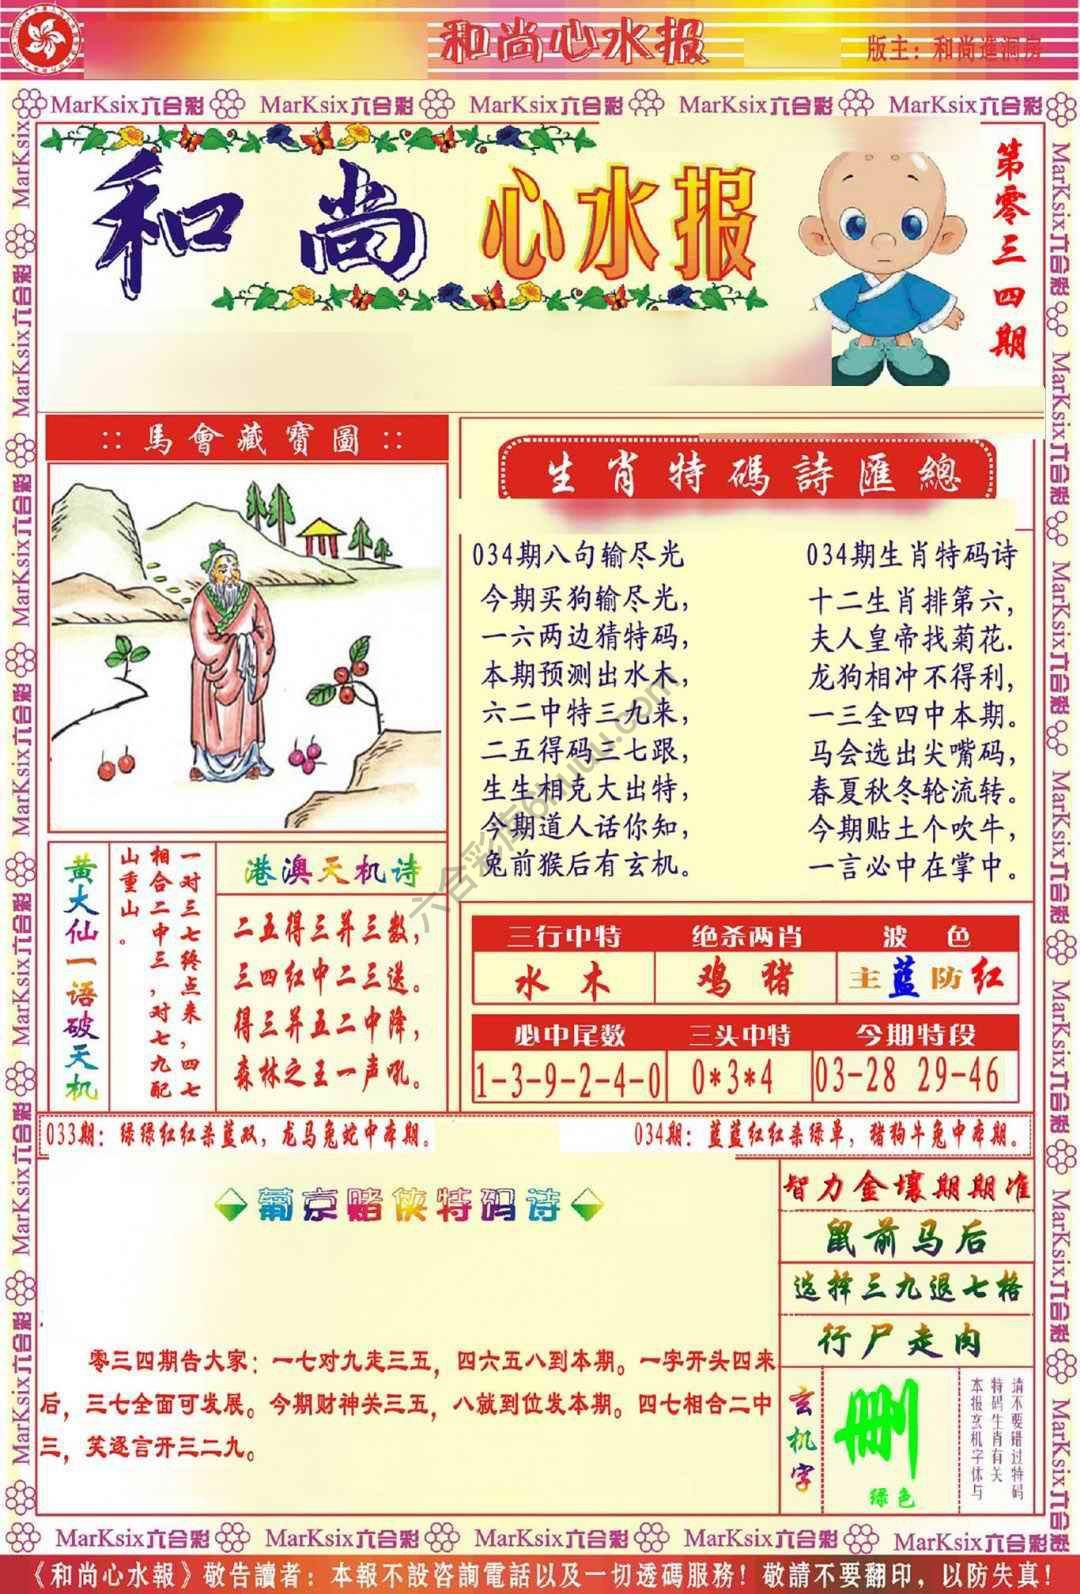 和尚心水报
版主：和尚進洞房
MarKsix六合彩 MarKsix六合彩 MarKsix六合彩 MarKsix六合彩 MarKsix六合彩
和尚心水报
第零三四期
::馬會藏寶圖::
生肖特碼詩匯總
034期八句输尽光
今期买狗输尽光，
一六两边猜特码，
本期预测出水木，
六二中特三九来，
二五得码三七跟，
生生相克大出特，
今期道人话你知，
兔前猴后有玄机。
034期生肖特码诗
十二生肖排第六，
夫人皇帝找菊花.
龙狗相冲不得利，
一三全四中本期。
马会选出尖嘴码，
春夏秋冬轮流转。
今期贴土个吹牛，
一言必中在掌中。
黄大仙一语破天机
一对三七终点来，四七
相合二中三，对七九配
山重山。
港澳天机诗
二五得三并三数，
三四红中二三送。
得三并五二中降，
森林之王一声吼。
三行中特 绝杀两肖 波色
水木 鸡猪 主蓝防红
必中尾数 三头中特 今期特段
1-3-9-2-4-0 0*3*4 03-28 29-46
033期：绿绿红红杀蓝双，龙马兔蛇中本期。
034期：蓝蓝红红杀绿单，猪狗牛兔中本期。
葡京赌侠特码诗
零三四期告大家：一七对九走三五，四六五八到本期。一字开头四来
后，三七全面可发展。今期财神关三五，八就到位发本期。四七相合二中
三，笑逐言开三二九。
智力金壤期期准
鼠前马后
选择三九退七格
行尸走肉
玄机字
删
绿色
请不要错过特码
特码生肖有关
本报玄机字体与
MarKsix六合彩 MarKsix六合彩 MarKsix六合彩 MarKsix六合彩 MarKsix六合彩
《和尚心水報》敬告讀者：本報不設咨詢電話以及一切透碼服務！敬請不要翻印，以防失真！